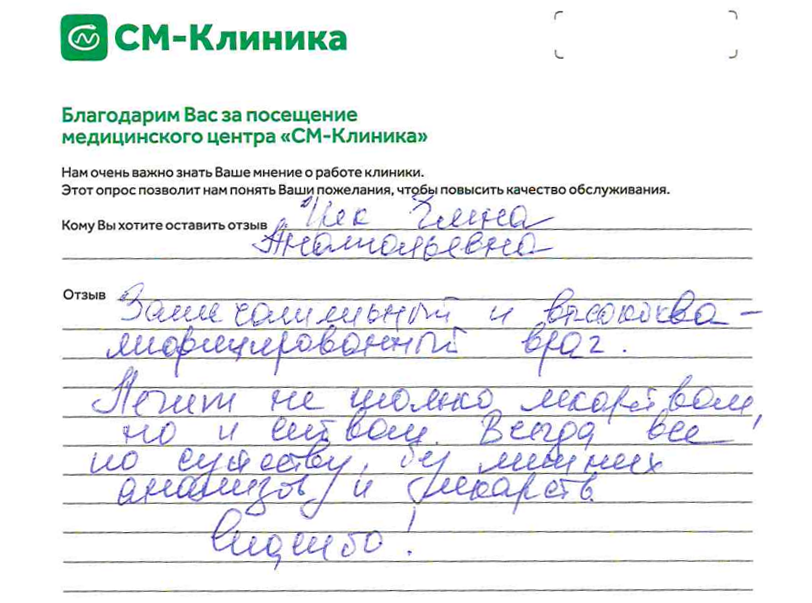 СМ-Клиника
Благодарим Вас за посещение
медицинского центра «СМ-Клиника»
Нам очень важно знать Ваше мнение о работе клиники.
Этот опрос позволит нам понять Ваши пожелания, чтобы повысить качество обслуживания.
Кому Вы хотите оставить отзыв
Анатольевна
Отзыв Замечательный и высококва-
лифицированный врач.
Лечит не только лекарством,
но и словом. Всегда все
по существу, без лишних
анализов и лекарств.
Спасибо!